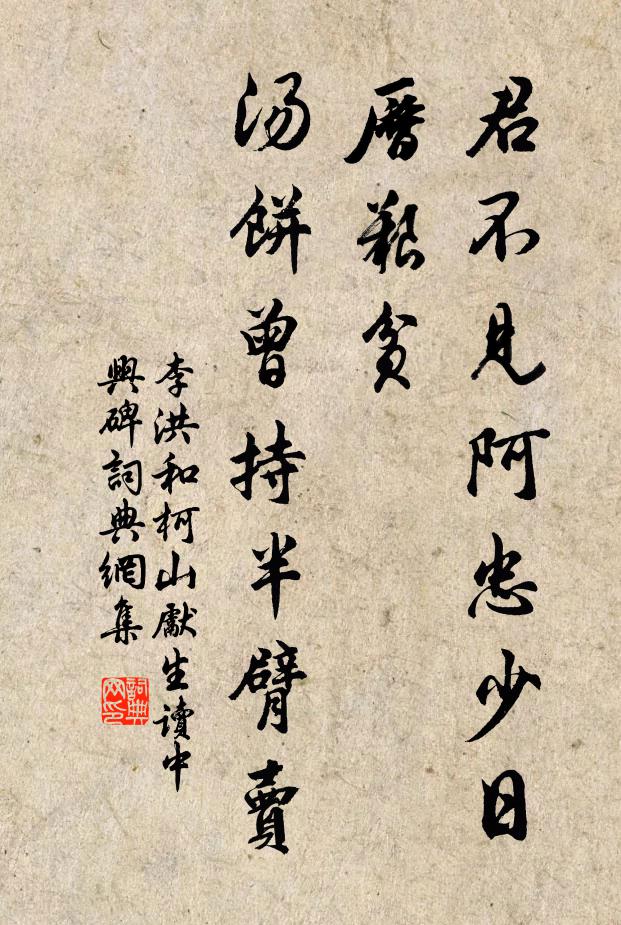 君不見阿忠少日
曆艱貧
湯餅曾持半臂賣
李洪和柯山獻生讀中
興碑詞典網集
詞典網印